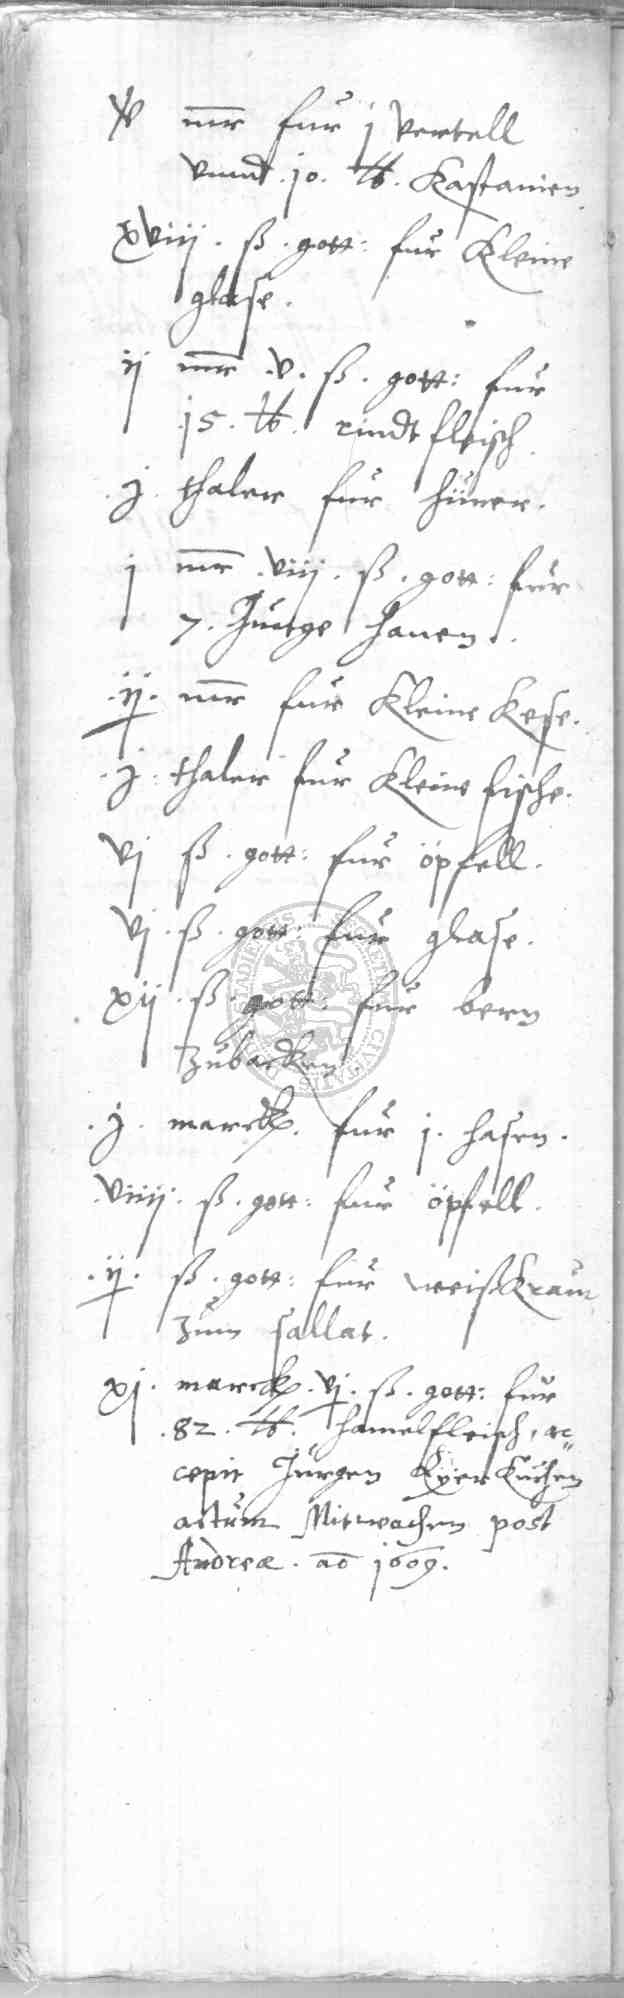 xv mr fur j vertell
vnnd .10. ℔. Kastanien
xviij. ß. gott: fur Kleine
glase.
ij mr .v. ß. gott: fur
.15. ℔. rindtfleisch.
.j. thaler fur hüner.
j mr .viij. ß. gott: fur
7. Junge hanen.
.ij. mr fur Kleine Kese.
.j. thaler fur Kleine fische.
vj ß. gott: fur öpfell.
vj. ß. gott: fur glase.
xij. ß. gott: fur bern
zubacken
.j. marck. fur j. hasen.
viiij. ß. gott: fur öpfell.
.ij. ß. gott: fur weißkraut
zum sallat.
xj. marck. vj. ß. gott: fur
.82. ℔. hamelfleisch, ac=
cepit Jurgen Kuchen
actum Mitwochen post
Andreæ. ao 1609.